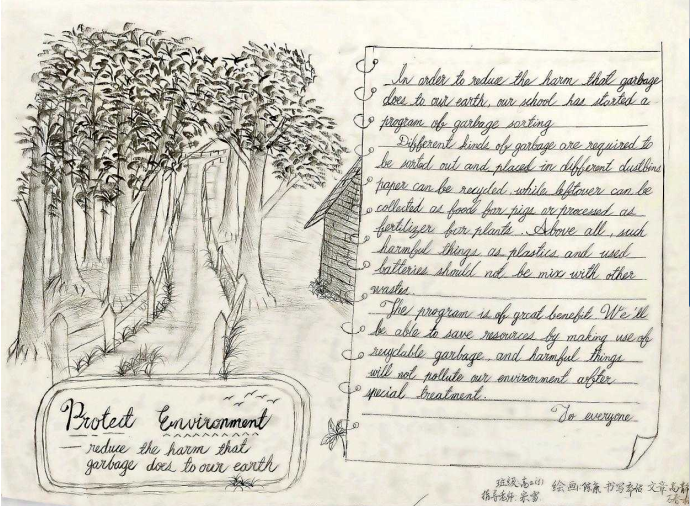 In order to reduce the harm that garbage
does to our earth, our school has started a
program of garbage sorting
Different kinds of garbage are required to
be sorted out and placed in different dustbins
paper can be recycled while leftover can be
collected as food for pigs or processed as
fertilizer for plants. Above all, such
harmful things as plastics and used
batteries should not be mix with other
wastes
The program is of great benefit. We'll
be able to save resources by making use of
recyclable garbage and harmful things
will not pollute our environment after
special treatment.
To everyone
Protect Environment
reduce the harm that
garbage does to our earth
班级:高
绘画 书写 文章
指导老师